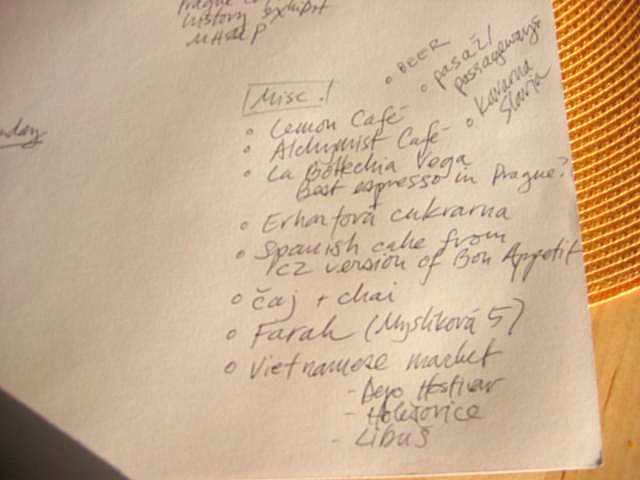 Prague
history exhibit
nday
• BEER
• pasaž /
passageways
• Kavarna
Slavia
Misc.!
• Lemon Café
• Alchymist Café
• La Bottechia Vega
Best espresso in Prague?
• Erhartova cukrarna
• Spanish cake from
CZ version of Bon Appetit
• čaj + chai
• Farah (Myslíková 5)
• Vietnamese market
- Depo Hostivar
- Holešovice
- Libuš